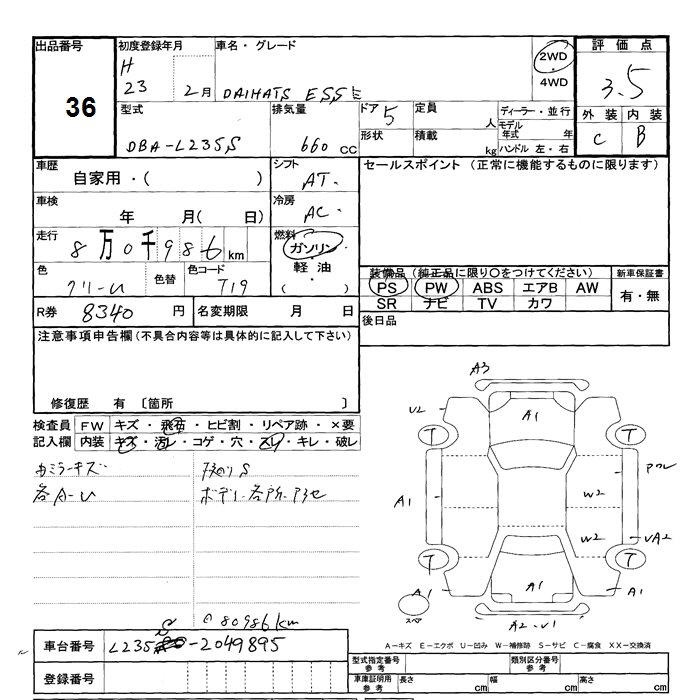 出品番号 初度登録年月 車名・グレード 評価点
36
H 23 2月 DAIHATS ESSE 2WD 4WD 3.5
型式 排気量 ドア 5 定員 人 ディーラー・並行 外装 内装
DBA-L235S 660 CC 形状 積載 kg モデル年式 年 ハンドル 左・右 C B
車歴 シフト セールスポイント (正常に機能するものに限ります)
自家用・( ) AT.
車検 冷房
年 月( 日) AC.
走行 燃料
8万0千986 km ガソリン
色 色替 色コード 軽油
T19 ( )
装備品 (純正品に限り○をつけてください) 新車保証書
PS PW ABS エアB AW 有・無
SR ナビ TV カワ
R券 8340 円 名変期限 月 日 後日品
注意事項申告欄 (不具合内容等は具体的に記入して下さい)
修復歴 有 〔箇所 〕
検査員 FW キズ・飛石・ヒビ割・リペア跡・×要
記入欄 内装 キズ・汚レ・コゲ・穴・スレ・キレ・破レ
カミラーキズ.
各A-U
ボデー各所
A3
U2 A1
T T
A1 W2
W2 UA2
T T
A1 A1 A1
スペ A2-U1
80986km
車台番号 L235S-2049895
登録番号
A-キズ E-エクボ U-凹み W-補修跡 S-サビ C-腐食 XX-交換済
型式指定番号 参考 類別区分番号 参考
車庫証明用 参考 長さ cm 幅 cm 高さ cm